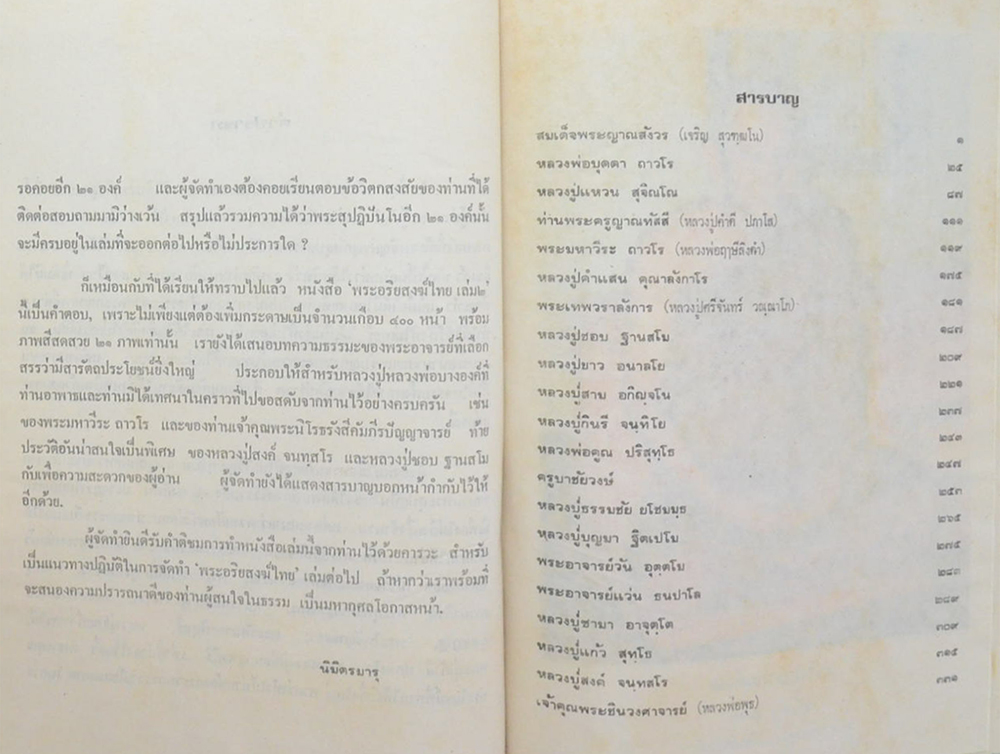 รอคอยอีก ๒๑ องค์ และผู้จัดทำเองต้องคอยเรียนตอบข้อวิตกสงสัยของท่านที่ได้
ติดต่อสอบถามมามิว่างเว้น สรุปแล้วรวมความได้ว่าพระสุปฏิปันโนอีก ๒๑ องค์นั้น
จะมีครบอยู่ในเล่มที่จะออกต่อไปหรือไม่ประการใด ?
ก็เหมือนกับที่ได้เรียนให้ทราบไปแล้ว หนังสือ 'พระอริยสงฆ์ไทย เล่ม๒'
นี้เป็นคำตอบ, เพราะไม่เพียงแต่ต้องเพิ่มกระดาษเป็นจำนวนเกือบ ๔๐๐ หน้า พร้อม
ภาพสี่สีสดสวย ๒๑ ภาพเท่านั้น เรายังได้เสนอบทความธรรมะของพระอาจารย์ที่เลือก
สรรว่ามีสารัตถประโยชน์ยิ่งใหญ่ ประกอบให้สำหรับหลวงปู่หลวงพ่อบางองค์ที่
ท่านอาพาธและท่านมิได้เทศนาในคราวที่ไปขอสดับจากท่านไว้อย่างครบครัน เช่น
ของพระมหาวีระ ถาวโร และของท่านเจ้าคุณพระนิโรธรังสีคัมภีรปัญญาจารย์ ท้าย
ประวัติอันน่าสนใจเป็นพิเศษ ของหลวงปู่สงค์ จนฺทสฺโร และหลวงปู่ชอบ ฐานสโม
กับเพื่อความสะดวกของผู้อ่าน ผู้จัดทำยังได้แสดงสารบาญบอกหน้ากำกับไว้ให้
อีกด้วย.
ผู้จัดทำยินดีรับคำติชมการทำหนังสือเล่มนี้จากท่านไว้ด้วยคารวะ สำหรับ
เป็นแนวทางปฏิบัติในการจัดทำ 'พระอริยสงฆ์ไทย' เล่มต่อไป ถ้าหากว่าเราพร้อมที่
จะสนองความปรารถนาดีของท่านผู้สนใจในธรรม เป็นมหากุศลโอกาสหน้า.
นิมิตรมารุ
สารบาญ
สมเด็จพระญาณสังวร (เจริญ สุวฑฺฒโน) ๑
หลวงพ่อบุดดา ถาวโร ๒๕
หลวงปู่แหวน สุจิณโณ ๘๗
ท่านพระครูญาณทัสสี (หลวงปู่คำดี ปภาโส) ๑๑๑
พระมหาวีระ ถาวโร (หลวงพ่อฤๅษีลิงดำ) ๑๑๙
หลวงปู่คำแสน คุณาลังกาโร ๑๗๕
พระเทพวราลังการ (หลวงปู่ศรีจันทร์ วณฺณาโภ) ๑๘๑
หลวงปู่ชอบ ฐานสโม ๑๘๗
หลวงปู่ขาว อนาลโย ๒๐๙
หลวงปู่สาม อกิญฺจโน ๒๒๑
หลวงปู่กินรี จนฺทิโย ๒๓๗
หลวงพ่อคูณ ปริสุทฺโธ ๒๔๓
ครูบาชัยวงษ์ ๒๔๗
หลวงปู่ธรรมชัย ๒๕๓
หลวงปู่บุญมา ฐิตเปโม ๒๖๕
พระอาจารย์วัน อุตฺตโม ๒๗๕
พระอาจารย์แว่น ธนปาโล ๒๘๓
หลวงปู่ชามา อาจุตฺโต ๒๘๙
หลวงปู่แก้ว สุทฺโธ ๓๐๙
หลวงปู่สงค์ จนฺทสโร ๓๑๕
เจ้าคุณพระชินวงศาจารย์ (หลวงพ่อพุธ) ๓๓๑